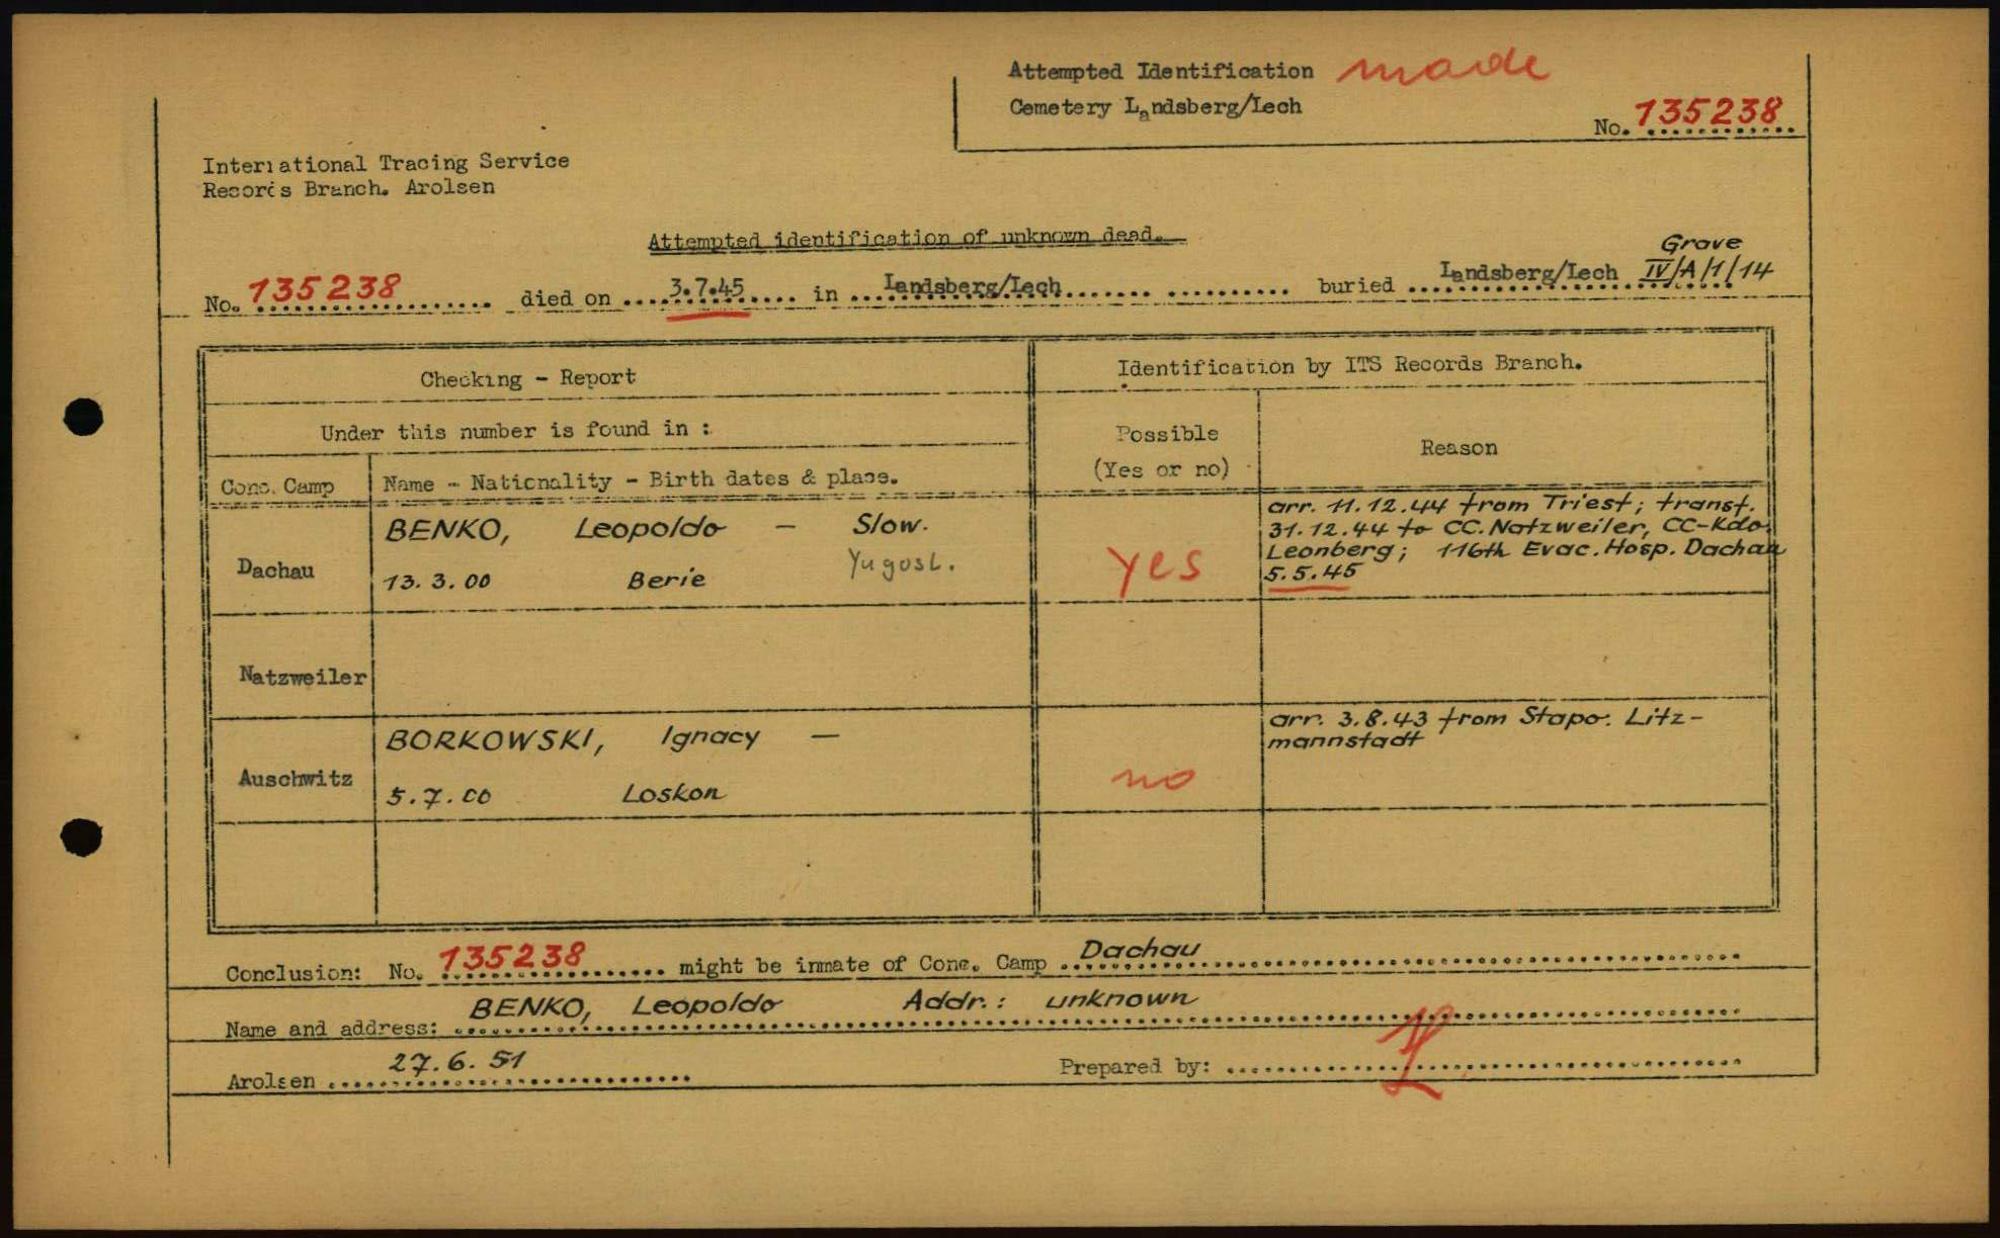 Attempted Identification made
Cemetery Landsberg/Lech
No. 135238
International Tracing Service
Records Branch. Arolsen
Attempted identification of unknown dead.
Grave
No. 135238 died on 3.7.45 in Landsberg/Lech buried Landsberg/Lech IV/A/1/14
Checking - Report
Identification by ITS Records Branch.
Under this number is found in :
Possible
(Yes or no)
Reason
Conc. Camp
Name - Nationality - Birth dates & place.
Dachau
BENKO, Leopoldo - Slow.
Yugosl.
13.3.00 Berie
yes
arr. 11.12.44 from Triest; transf.
31.12.44 to CC. Natzweiler, CC-Kdo.
Leonberg; 116th Evac. Hosp. Dachau
5.5.45
Natzweiler
Auschwitz
BORKOWSKI, Ignacy -
5.7.00 Loskon
no
arr. 3.8.43 from Stapo. Litz-
mannstadt
Conclusion: No. 135238 might be inmate of Conc. Camp Dachau
Name and address: BENKO, Leopoldo Addr.: unknown
Arolsen 27.6.51
Prepared by: